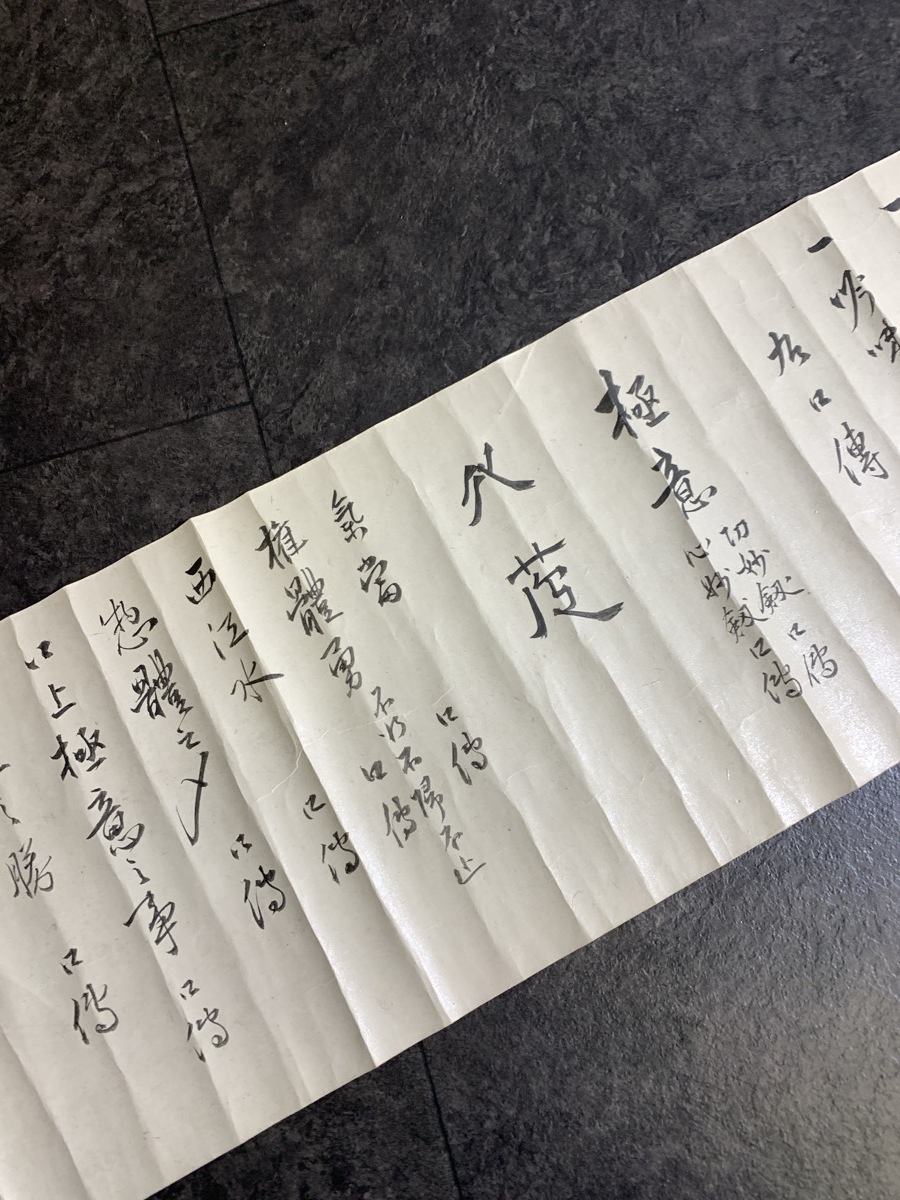 一吟味
右口傳
極意
切妙剱 口傳
心妙剱 口傳
八莚
氣當 口傳
権體勇 不行不帰不止 口傳
西江水 口傳
惣體之〆 口傳
口上極意之事 口傳
勝 口傳